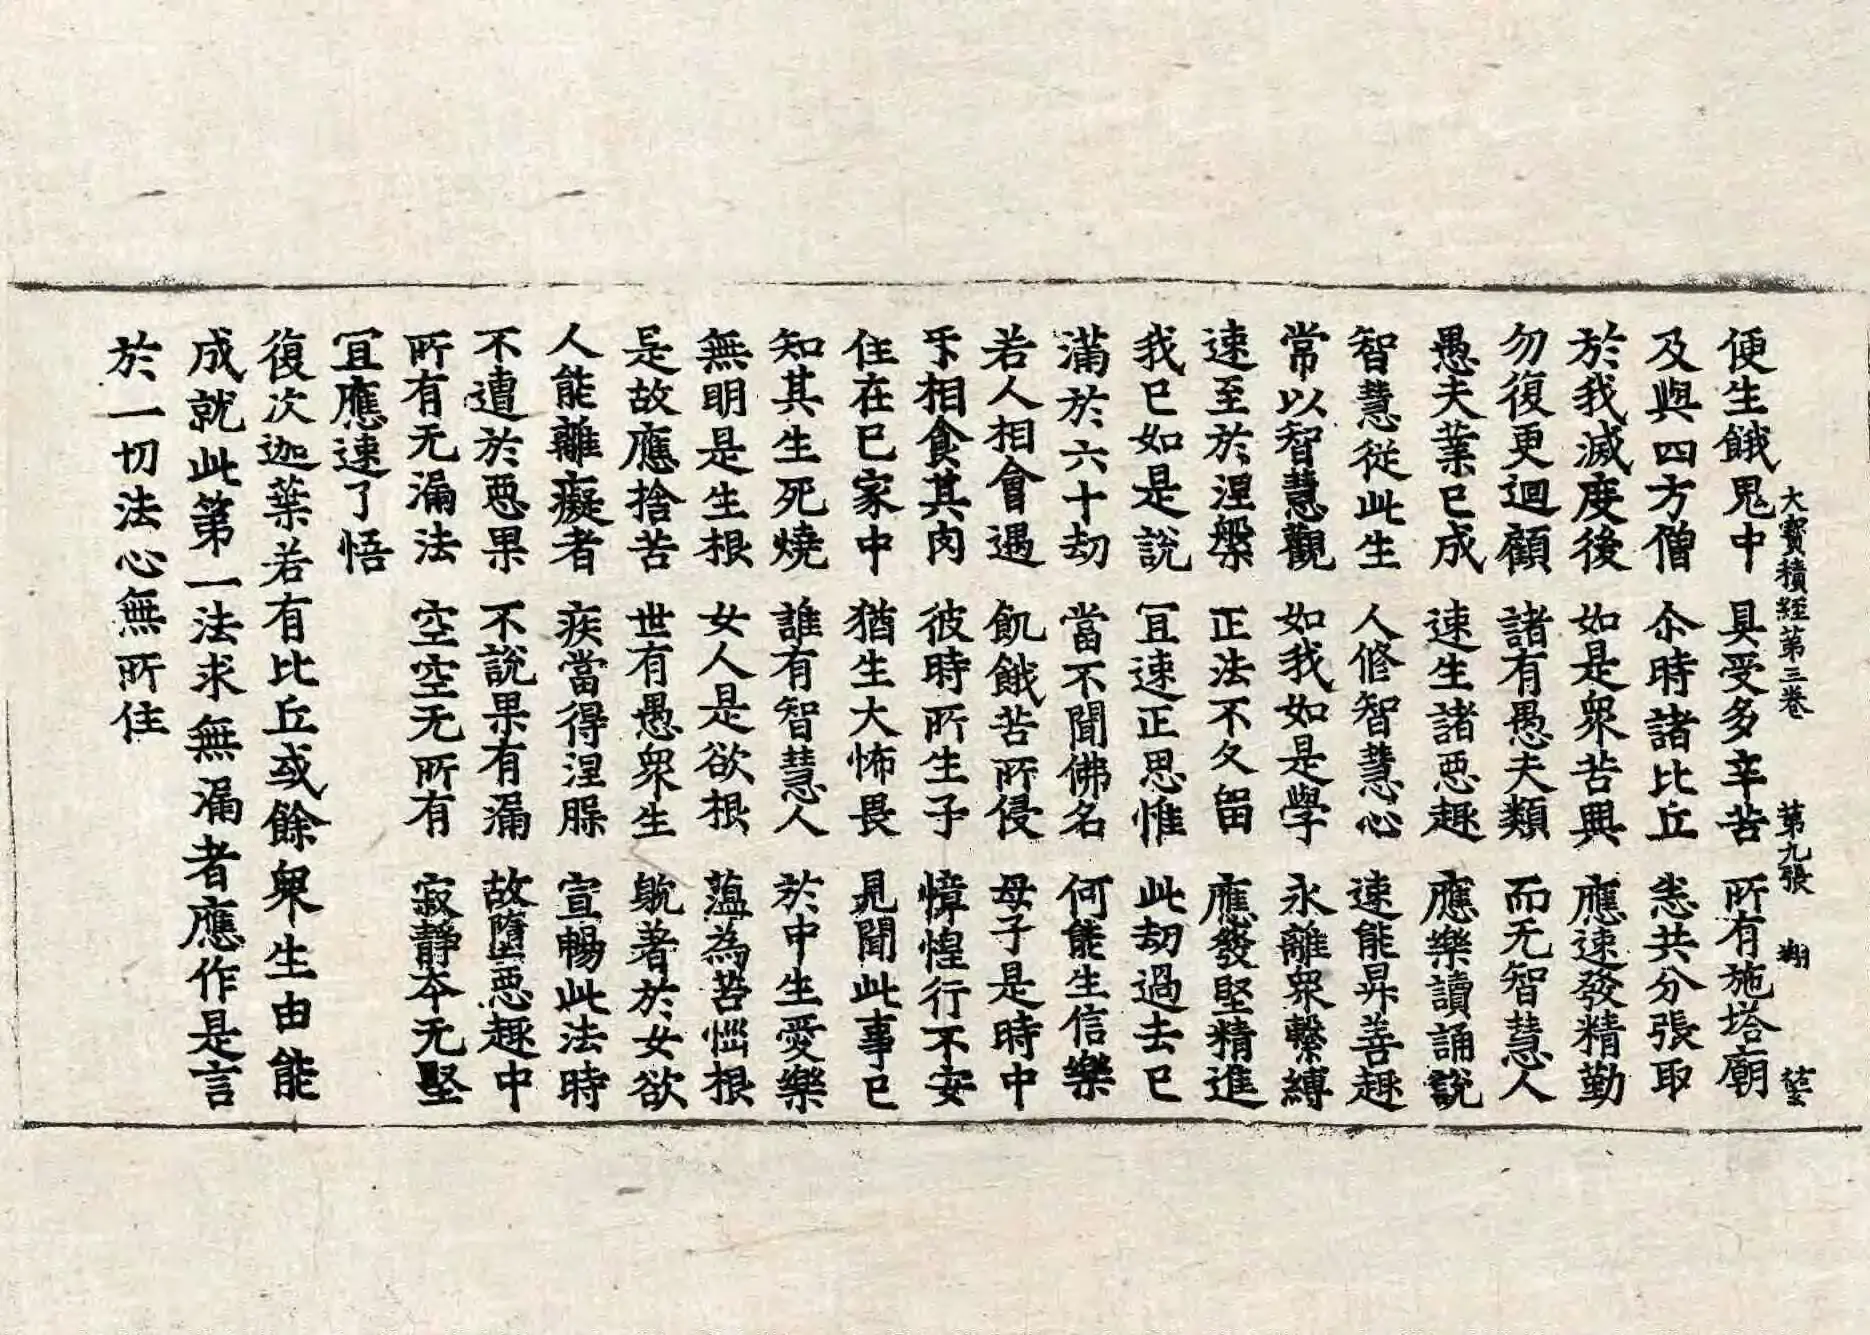 大寶積経第三卷 第九張 翔
便生餓鬼中 具受多辛苦 所有施塔廟
及與四方僧 尒時諸比丘 恙共分張取
於我滅度後 如是衆苦興 應速發精勤
勿復更迴顧 諸有愚夫類 而无智慧人
愚夫業已成 速生諸惡趣 應樂讀誦說
智慧從此生 人修智慧心 速能昇善趣
常以智慧觀 如我如是學 永離衆繫縛
速至於涅槃 正法不久留 應發堅精進
我已如是說 冝速正思惟 此劫過去已
滿於六十劫 當不聞佛名 何能生信樂
若人相會遇 飢餓苦所侵 母子是時中
㸦相食其肉 彼時所生子 慞惶行不安
住在已家中 猶生大怖畏 見聞此事已
知其生死燒 誰有智慧人 於中生愛樂
無明是生根 女人是欲根 薀為苦惱根
是故應捨苦 世有愚衆生 躭著於女欲
人能離癡者 疾當得涅𣵀 宣暢此法時
不遭於惡果 不說果有漏 故墮惡趣中
所有无漏法 空空无所有 寂靜夲无堅
冝應速了悟
復次迦葉若有比丘或餘衆生由能
成就此第一法求無漏者應作是言
於一切法心無所住